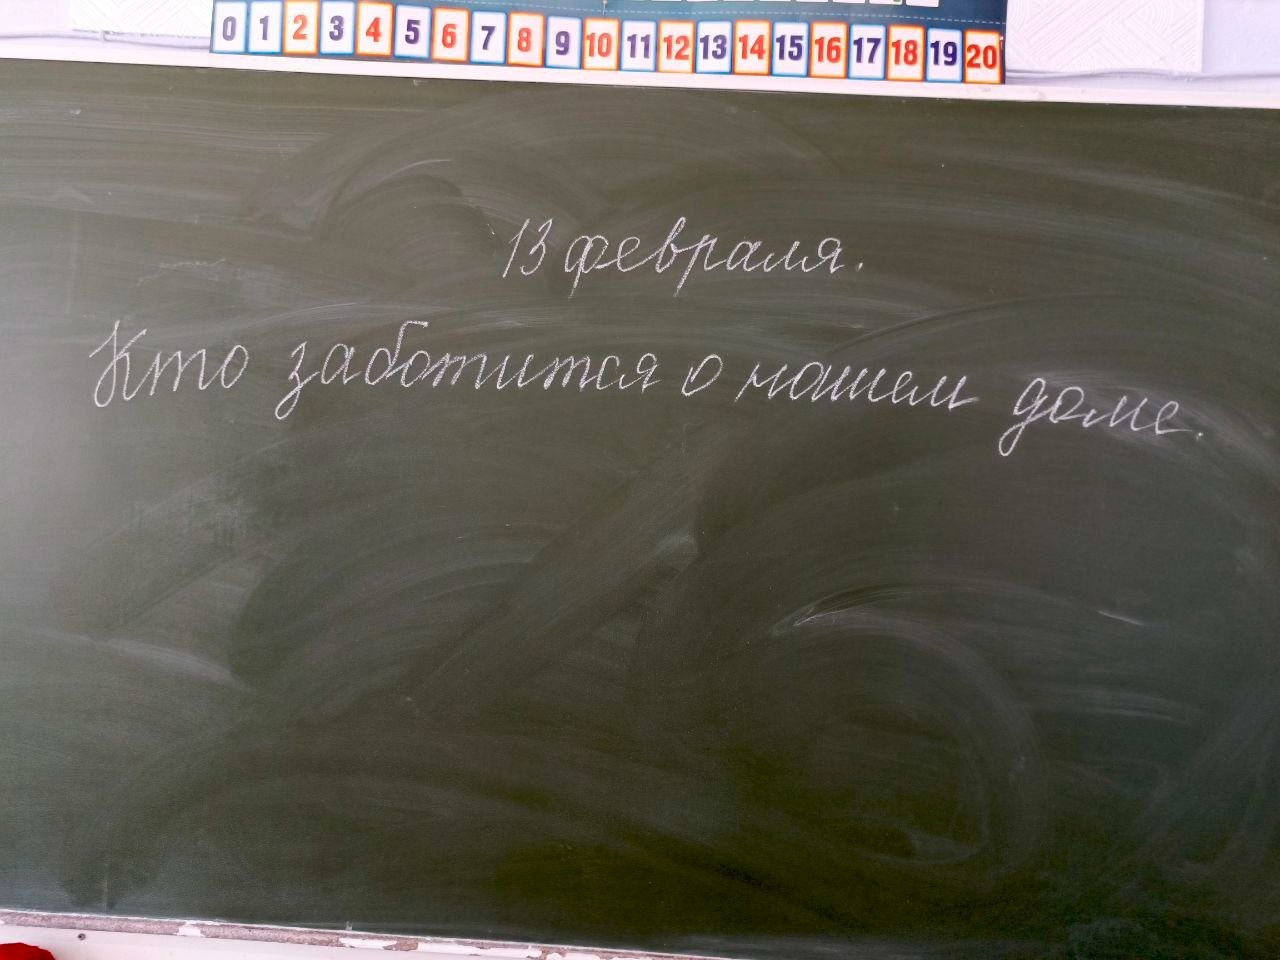 0 1 2 3 4 5 6 7 8 9 10 11 12 13 14 15 16 17 18 19 20
13 февраля.
Кто заботится о нашем доме.